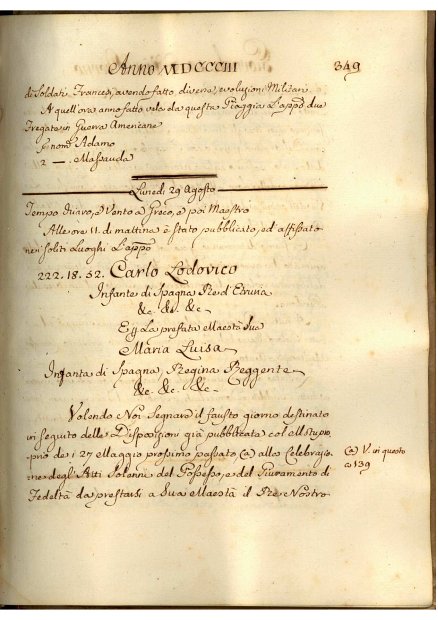 Anno MDCCCIII
349
di Soldati Francesi, avendo fatto diverse evoluzioni Militari
A quell'ora anno fatto vela da questa Piaggia L'appo due
Fregate in Guerra Americane
Pa nomta Adamo
2 — Massauda
Lunedì 29 Agosto
Tempo chiaro, e Vento a Greco, e poi Maestro
Alle ore 11. di mattina è stato pubblicato, ed affissato
nei soliti Luoghi L'appo
222.18.52. Carlo Lodovico
Infante di Spagna Re d'Etruria
&c. &c. &c.
E La prefata Maestà Sua
Maria Luisa
Infanta di Spagna, Regina Reggente
&c. &c. &c.
Volendo Noi Segnare il fausto giorno destinato
in seguito delle Disposizioni già pubblicate col Motupro
prio de i 27 Maggio prossimo passato (a) alla Celebrazio
ne degl'Atti Solenni del Possesso, e del Giuramento di
Fedeltà da prestarsi a Sua Maestà il Re Nostro
(a) V. in questo
a 139